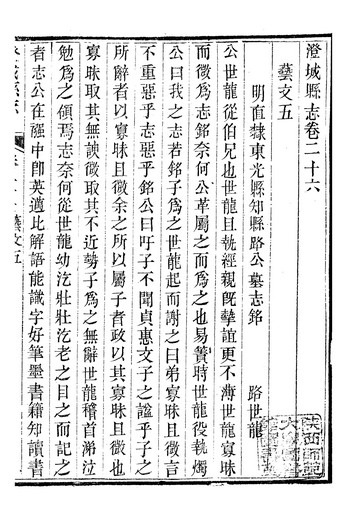 澄城縣志卷二十六
藝文五
明直隸東光縣知縣路公墓志銘 路世龍
公世龍從伯兄也世龍且執經親旣摯誼更不薄世龍寡昧
而徵爲志銘奈何公革屬之而爲之也易簀時世龍役執燭
公曰我之志若銘子爲之世龍起而謝之曰弟寡昧且微言
不重惡乎志惡乎銘公曰吁子不聞貞惠文子之諡乎子之
所辭者以寡昧且微余之所以屬子者政以其寡昧且微也
寡昧取其無諛微取其不近勢子爲之無辭世龍稽首涕泣
勉爲之頷焉志奈何從世龍幼汔壯壯汔老之目之而記之
者志公在襁中卽英邁比解語能識字好筆墨書籍知讀書
藝文五